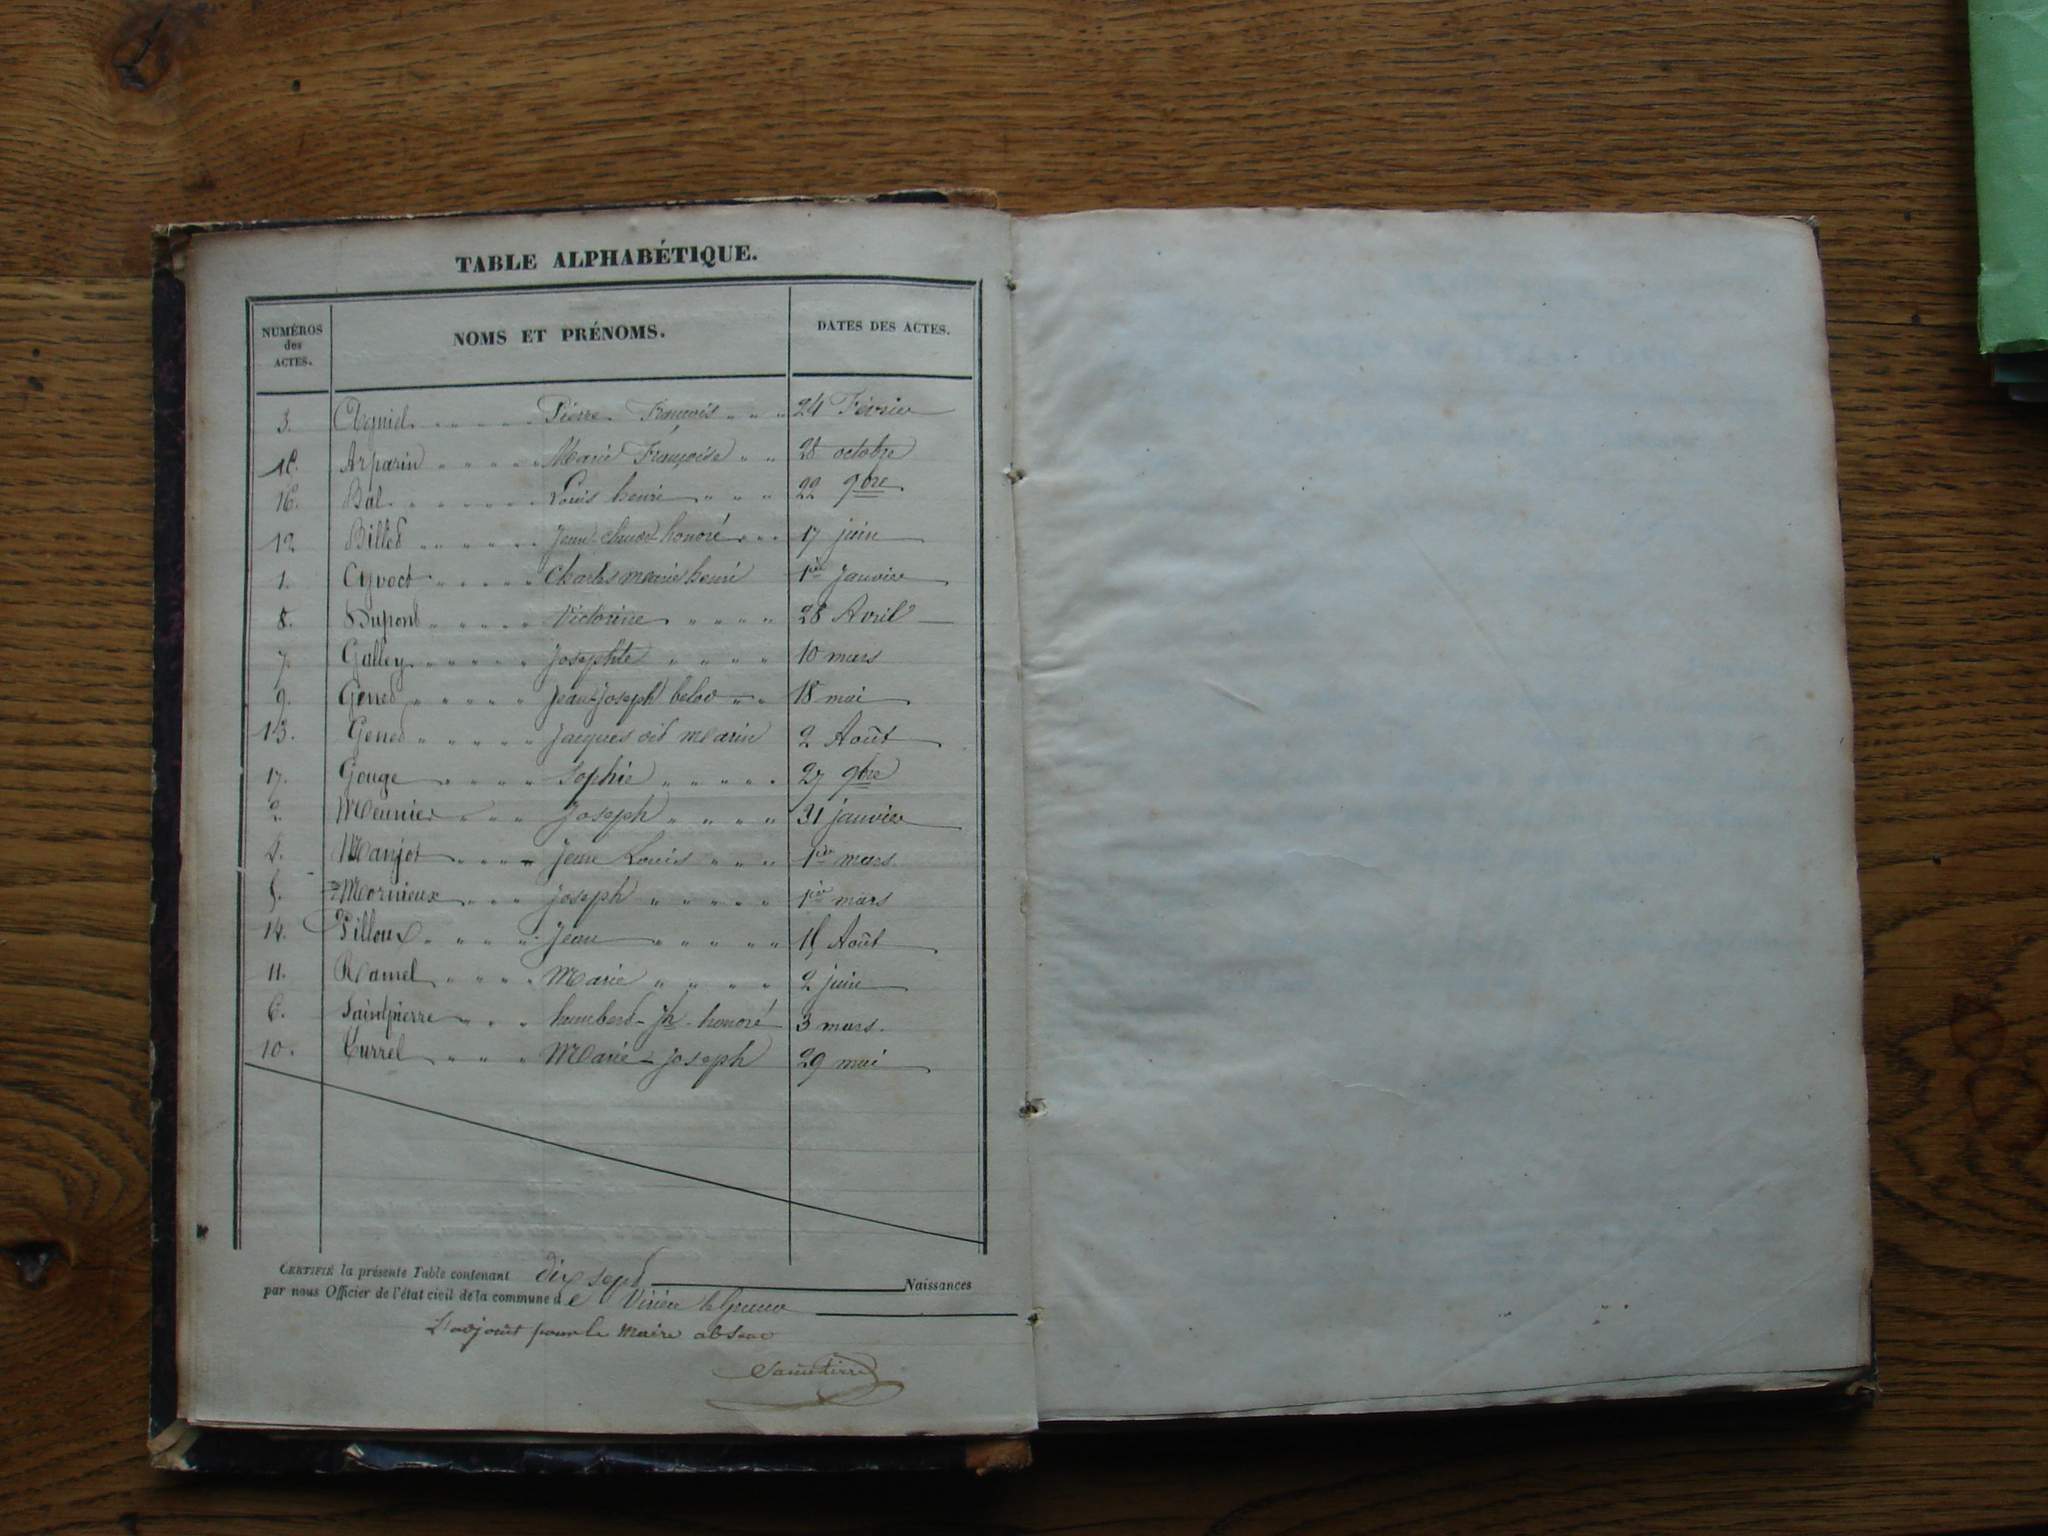 TABLE ALPHABÉTIQUE.
NUMÉROS des ACTES. NOMS ET PRÉNOMS. DATES DES ACTES.
3. Pierre François 24 Février
Arparin Marie Françoise 28 octobre
16. Bal Louis henri 22 9bre
12 Billed honoré 17 juin
1. Cyvoct Charles marie henri 1er Janvier
8. Dupont Victorine 28 Avril
7. Galley Josephte 10 mars
9. Gened Jean Joseph 18 mai
13. Gened Jacques dit marin 2 Août
17. Gouge Sophie 27 9bre
2. Meunier Joseph 31 janvier
4. Manjot Jean Louis 1er mars
5. Mornieux Joseph 1er mars
14. Pilloux Jean 15 Août
11. Ramel Marie 2 juin
6. Saintpierre humbert - Jh - honoré 3 mars.
10. Currel Marie - Joseph 29 mai
CERTIFIÉ la présente Table contenant dix sept Naissances
par nous Officier de l'état civil de la commune de Virieu
L'adjoint pour le Maire absent